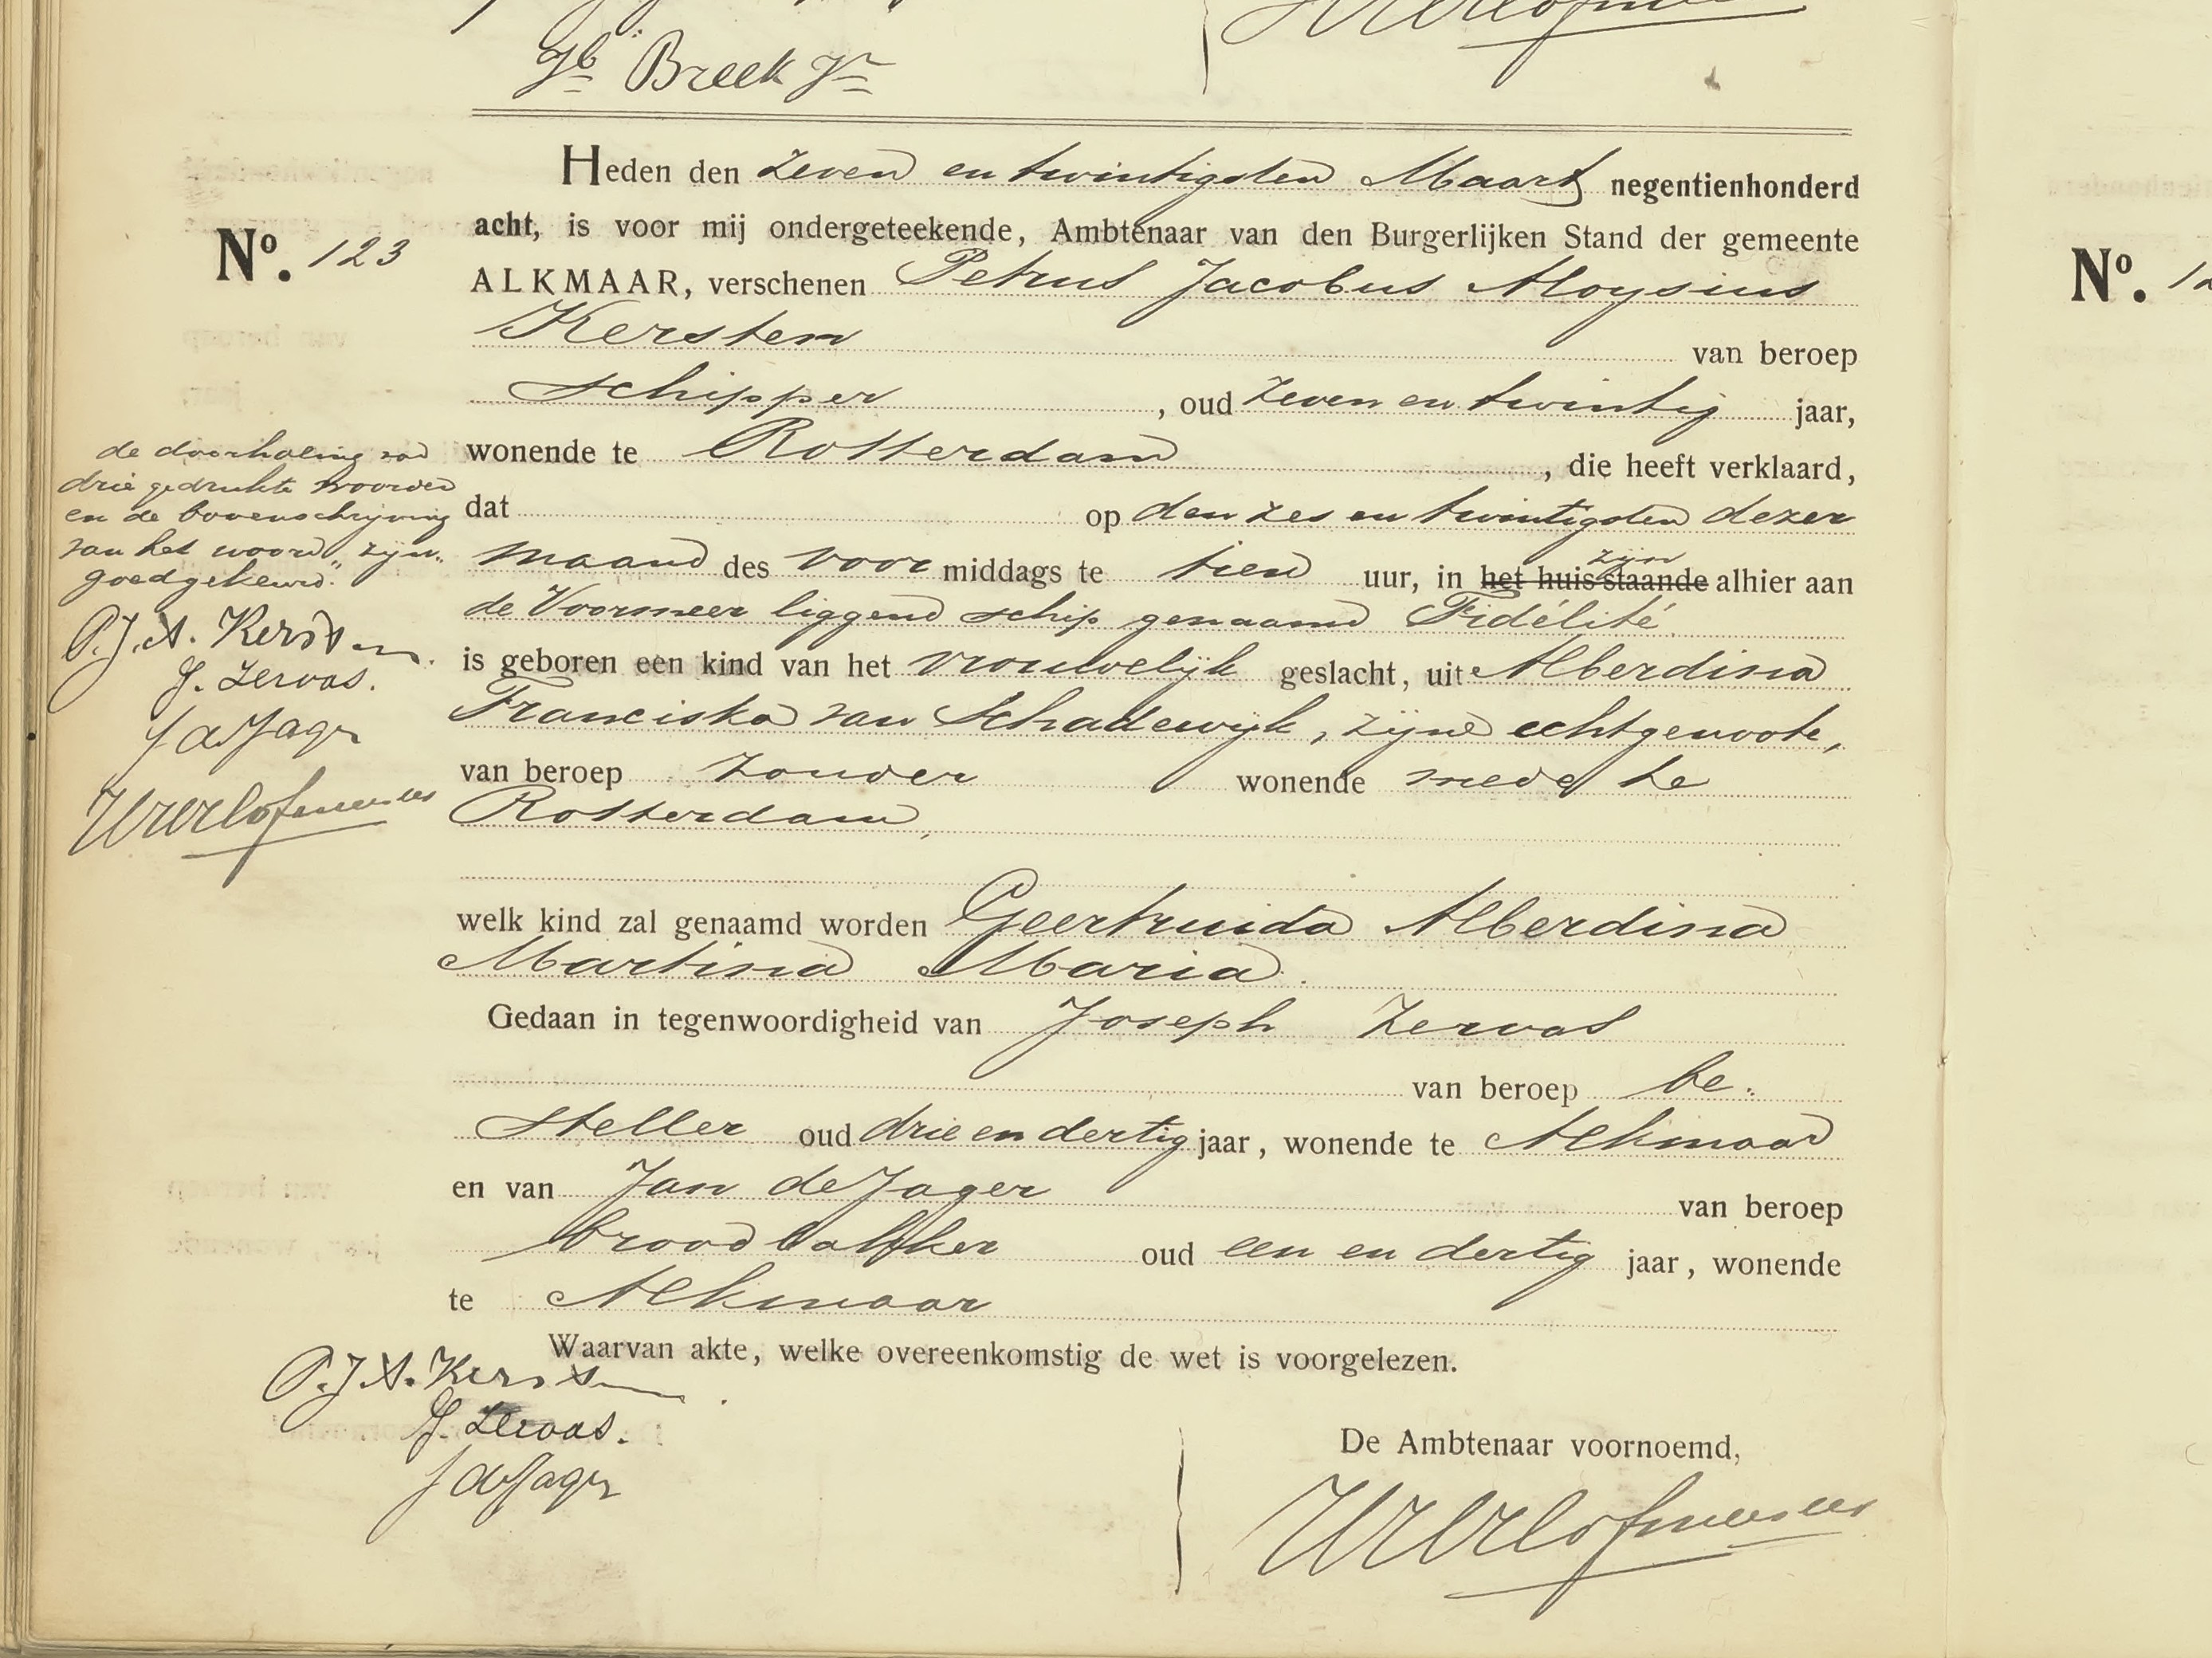 Jb Breek Jr
Heden den zeven en twintigsten Maart negentienhonderd
acht, is voor mij ondergeteekende, Ambtenaar van den Burgerlijken Stand der gemeente
No. 123
ALKMAAR, verschenen Petrus Jacobus Aloysius
Kersten van beroep
schipper, oud zeven en twintig jaar,
wonende te Rotterdam, die heeft verklaard,
dat op den zes en twintigsten dezer
zijn
maand des voor middags te tien uur, in het huis staande alhier aan
de Voormeer liggend schip genaamd Fidélité.
is geboren een kind van het vrouwelijk geslacht, uit Alberdina
Franciska van Schadewijk, zijne echtgenoote,
van beroep zonder wonende mede te
Rotterdam,
welk kind zal genaamd worden Geertruida Alberdina
Martina Maria.
Gedaan in tegenwoordigheid van Joseph Zervas
van beroep be:
steller oud drie en dertig jaar, wonende te Alkmaar
en van Jan de Jager van beroep
broodbakker oud een en dertig jaar, wonende
te Alkmaar
Waarvan akte, welke overeenkomstig de wet is voorgelezen.
P.J.A. Kersten.
J. Zervas.
J de Jager
De Ambtenaar voornoemd,
de doorhaling van
drie gedrukte woorden
en de bovenschrijving
van het woord „zijn"
goedgekeurd.
P.J.A. Kersten.
J. Zervas.
J de Jager
No. 12